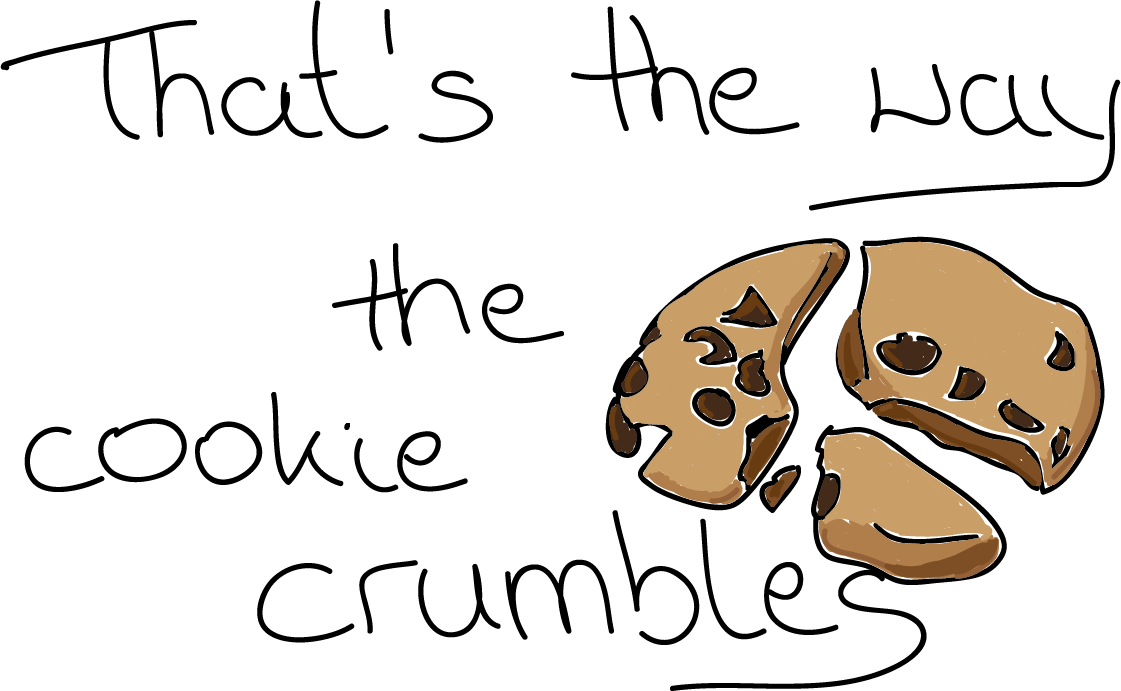 That's the way
the
cookie
crumbles